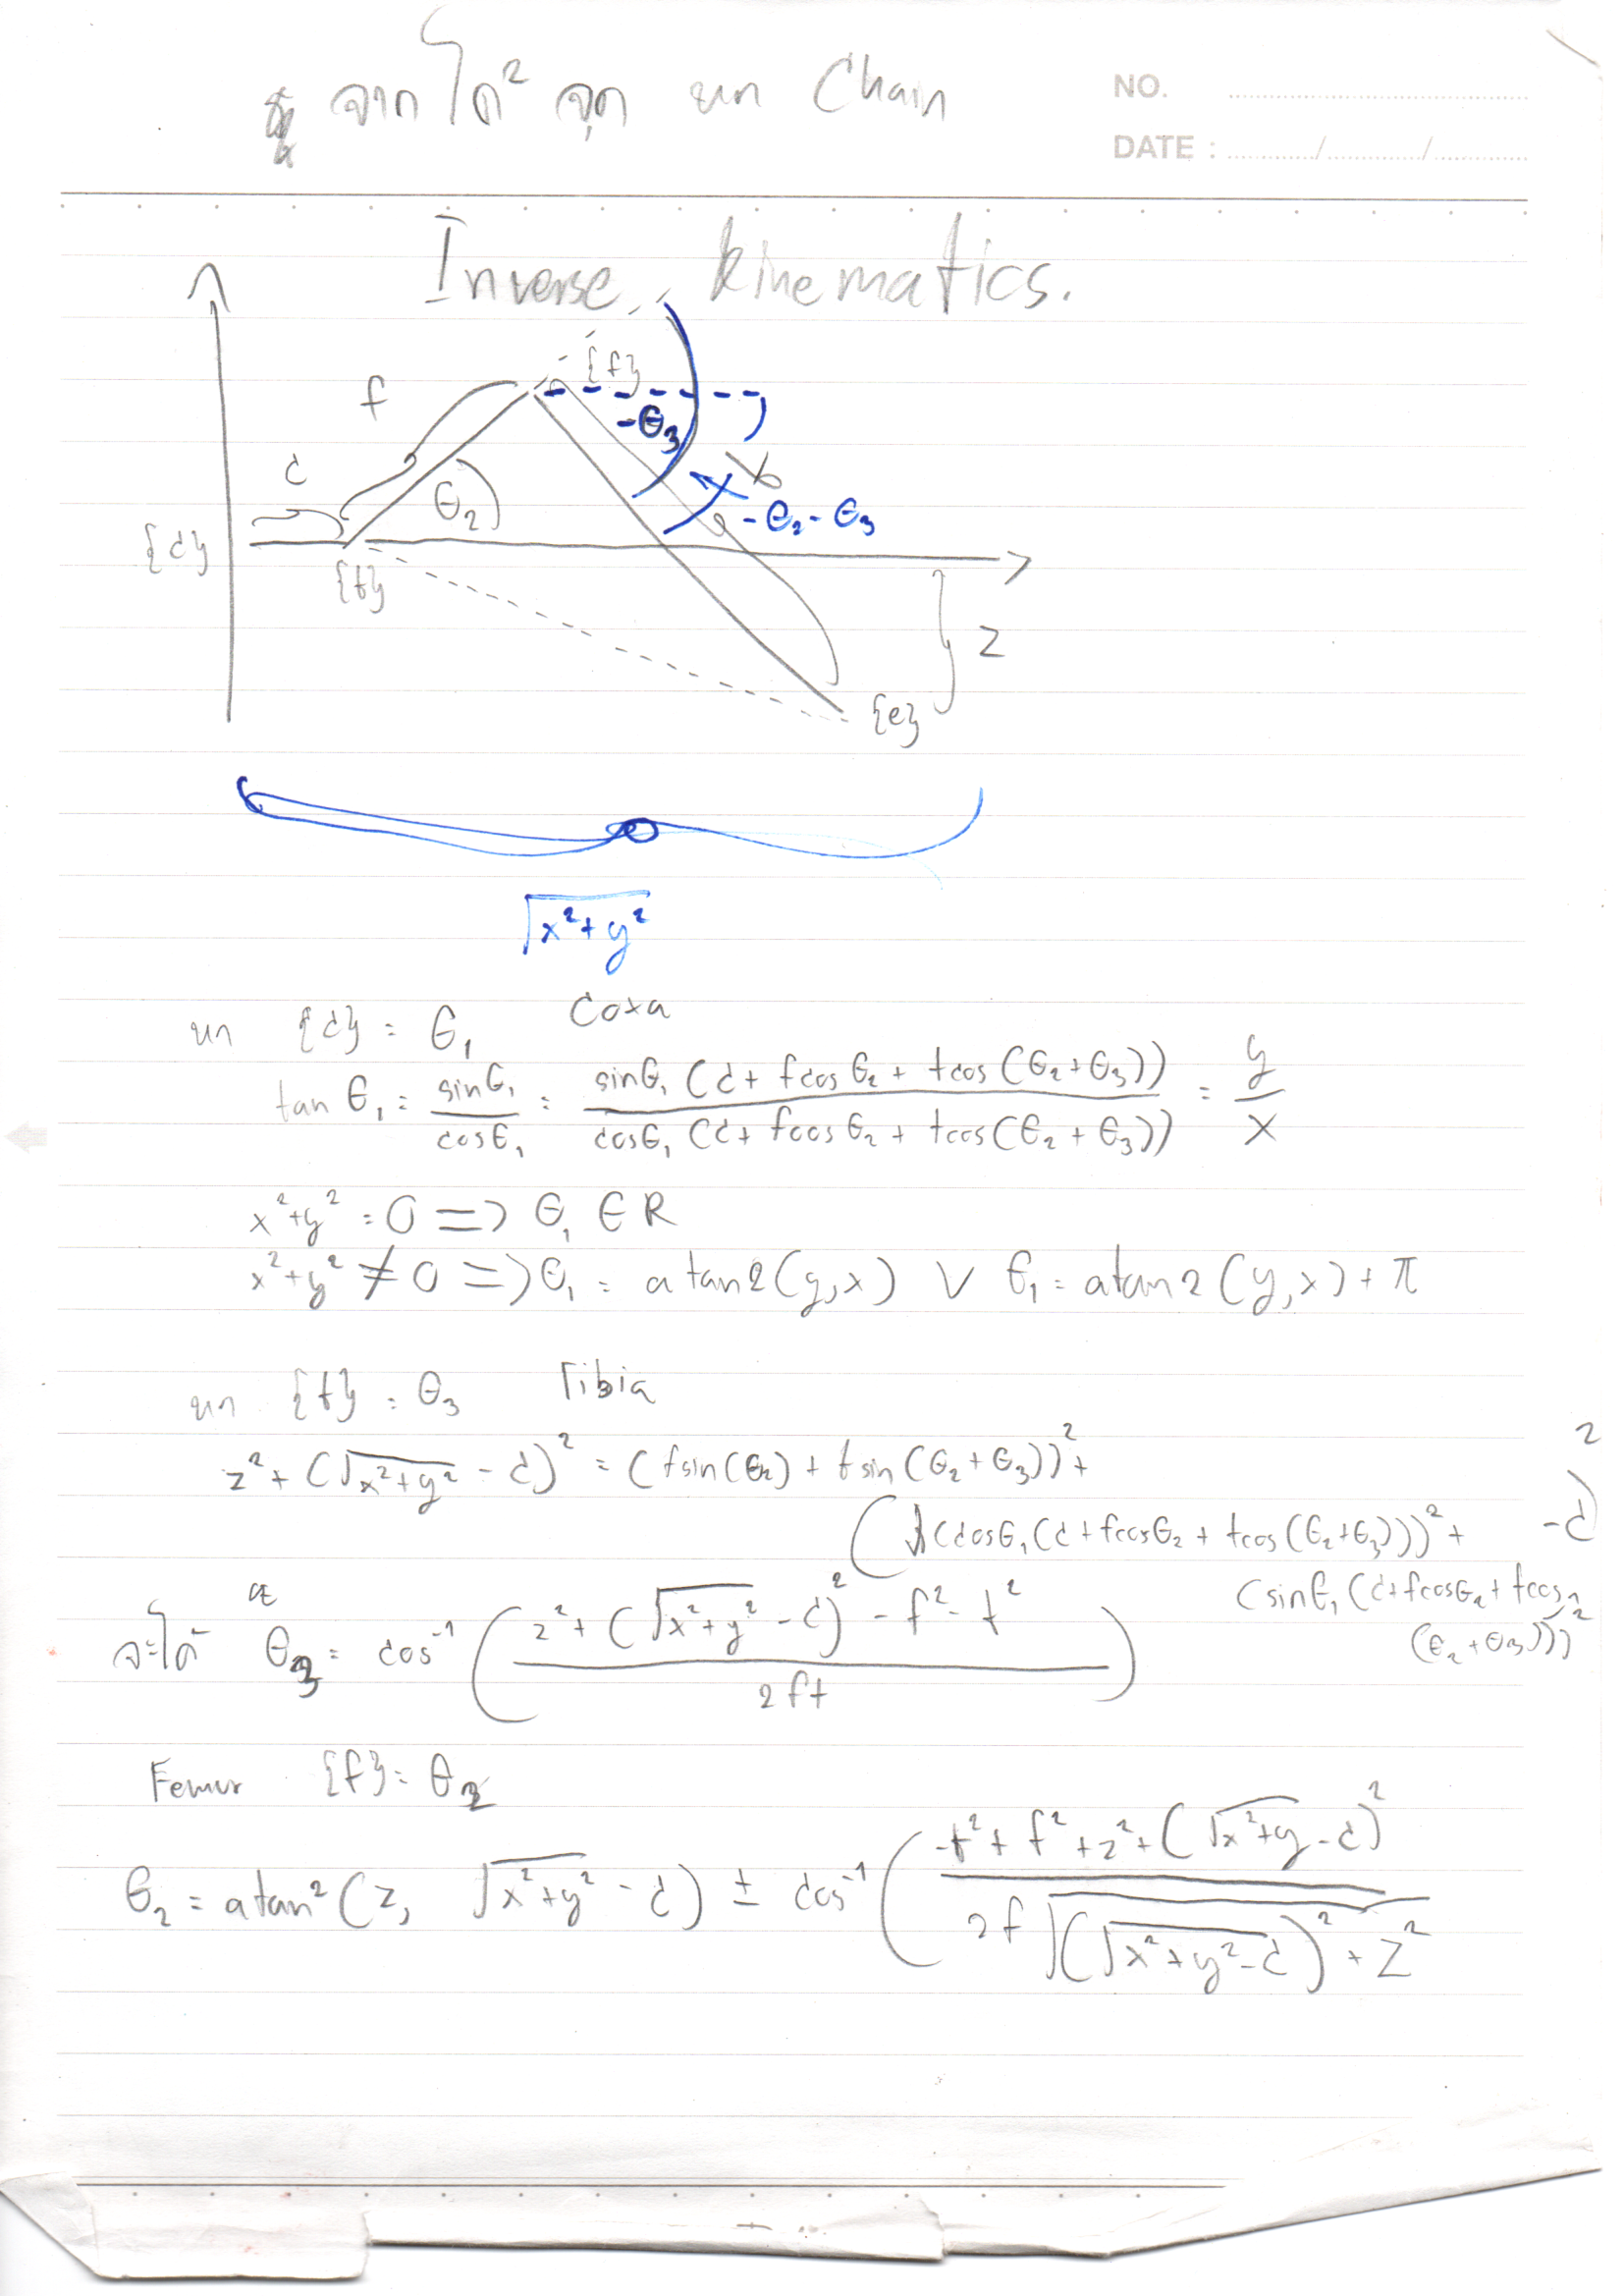 จากใดๆ จุด บน Chain
NO.
DATE : / /
Inverse kinematics.
f
{f}
-θ₃
c
θ₂
-θ₂-θ₃
{c}
{t}
z
{e}
√(x²+y²)
บน {c} = θ₁ Coxa
tan θ₁ = sinθ₁/cosθ₁ = sinθ₁(c + fcosθ₂ + tcos(θ₂+θ₃))/cosθ₁(c + fcosθ₂ + tcos(θ₂+θ₃)) = y/x
x²+y² = 0 => θ₁ ∈ R
x²+y² ≠ 0 => θ₁ = atan2(y,x) ∨ θ₁ = atan2(y,x) + π
บน {t} = θ₃ Tibia
z² + (√(x²+y²) - c)² = (fsin(θ₂) + tsin(θ₂+θ₃))² +
(√((cosθ₁(c + fcosθ₂ + tcos(θ₂+θ₃)))² + (sinθ₁(c+fcosθ₂+tcos(θ₂+θ₃)))²) - c)²
จะได้ θ₃ = cos⁻¹((z² + (√(x²+y²) - c)² - f² - t²)/2ft)
Femur {f} = θ₂
θ₂ = atan²(z, √(x²+y²) - c) ± cos⁻¹((-t² + f² + z² + (√(x²+y) - c)²)/(2f√((√(x²+y²-c))² + z²)))